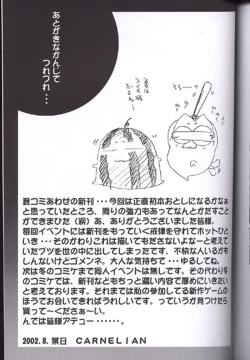 あとがきなかんじで
つれづれ・・・
夏は
スイカ
だねぇ
夏コミあわせの新刊・・・今回は正直初本おとしになるかなぁ
と思っていたところ、周りの強力もあってなんとかだすこと
ができました（涙）あ、ありがとうございました皆様。
毎回イベントには新刊をもっていく戒律を守れてホットひと
いき・・・そのかわりこれは描いてもださないよなぁ～と考えて
いたブツを世の中に出してしまったです。不特な人いるかも
しんないけどゴメンネ。大人な気持ちで・・・ゆるしてね。
次は冬のコミケまで同人イベントは無しです。その代わり冬
のコミケでは、新刊などもちっと濃い内容で厚めにいきたい
と考えております。それまでは励の参加してる新作ゲームの
ほうでお会いできれば うれしいです。っていうか見つけたら
買って～くださぁ～い。
んでは皆様アテュー・・・・。
2002.8. 某日 CARNELIAN